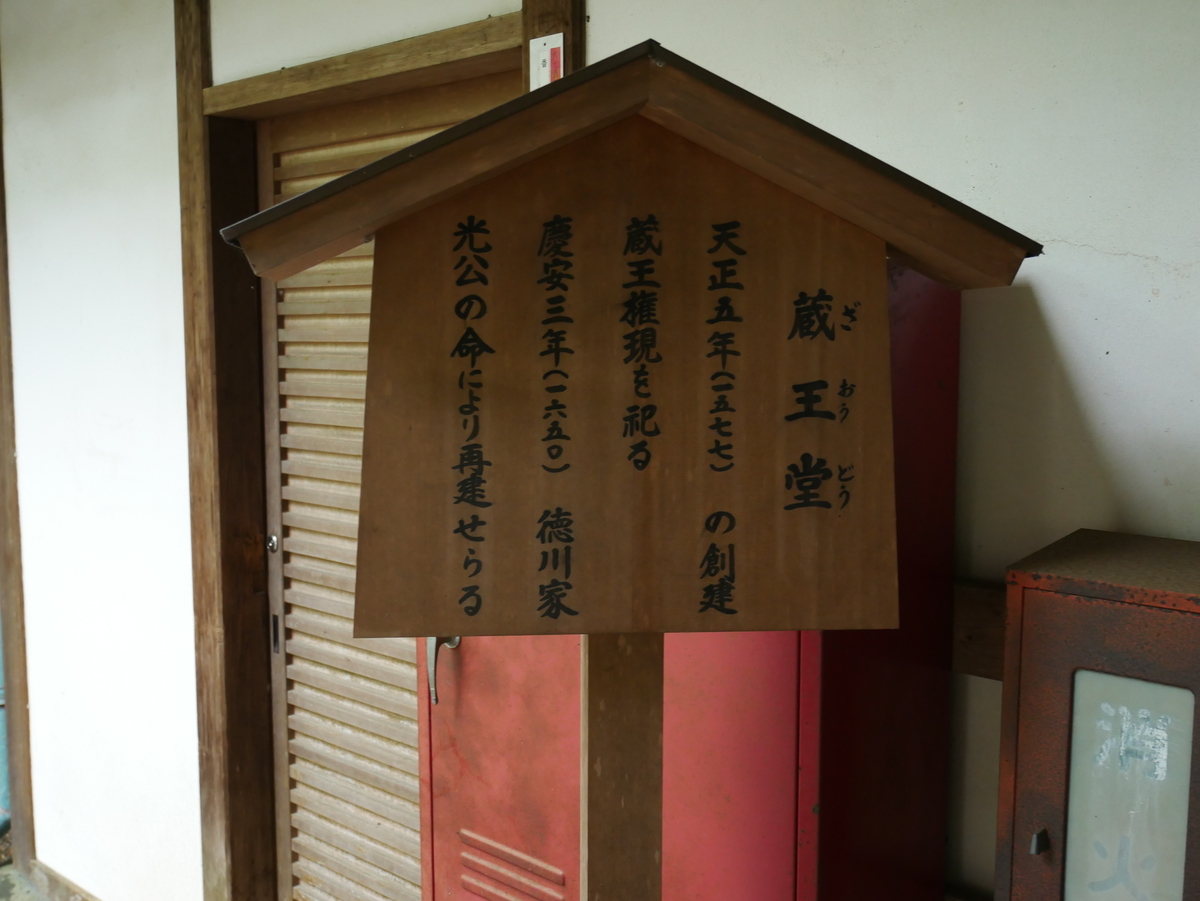 蔵王堂
ざ おう どう
天正五年(一五七七) の創建
蔵王権現を祀る
慶安三年(一六五〇) 徳川家
光公の命により再建せらる